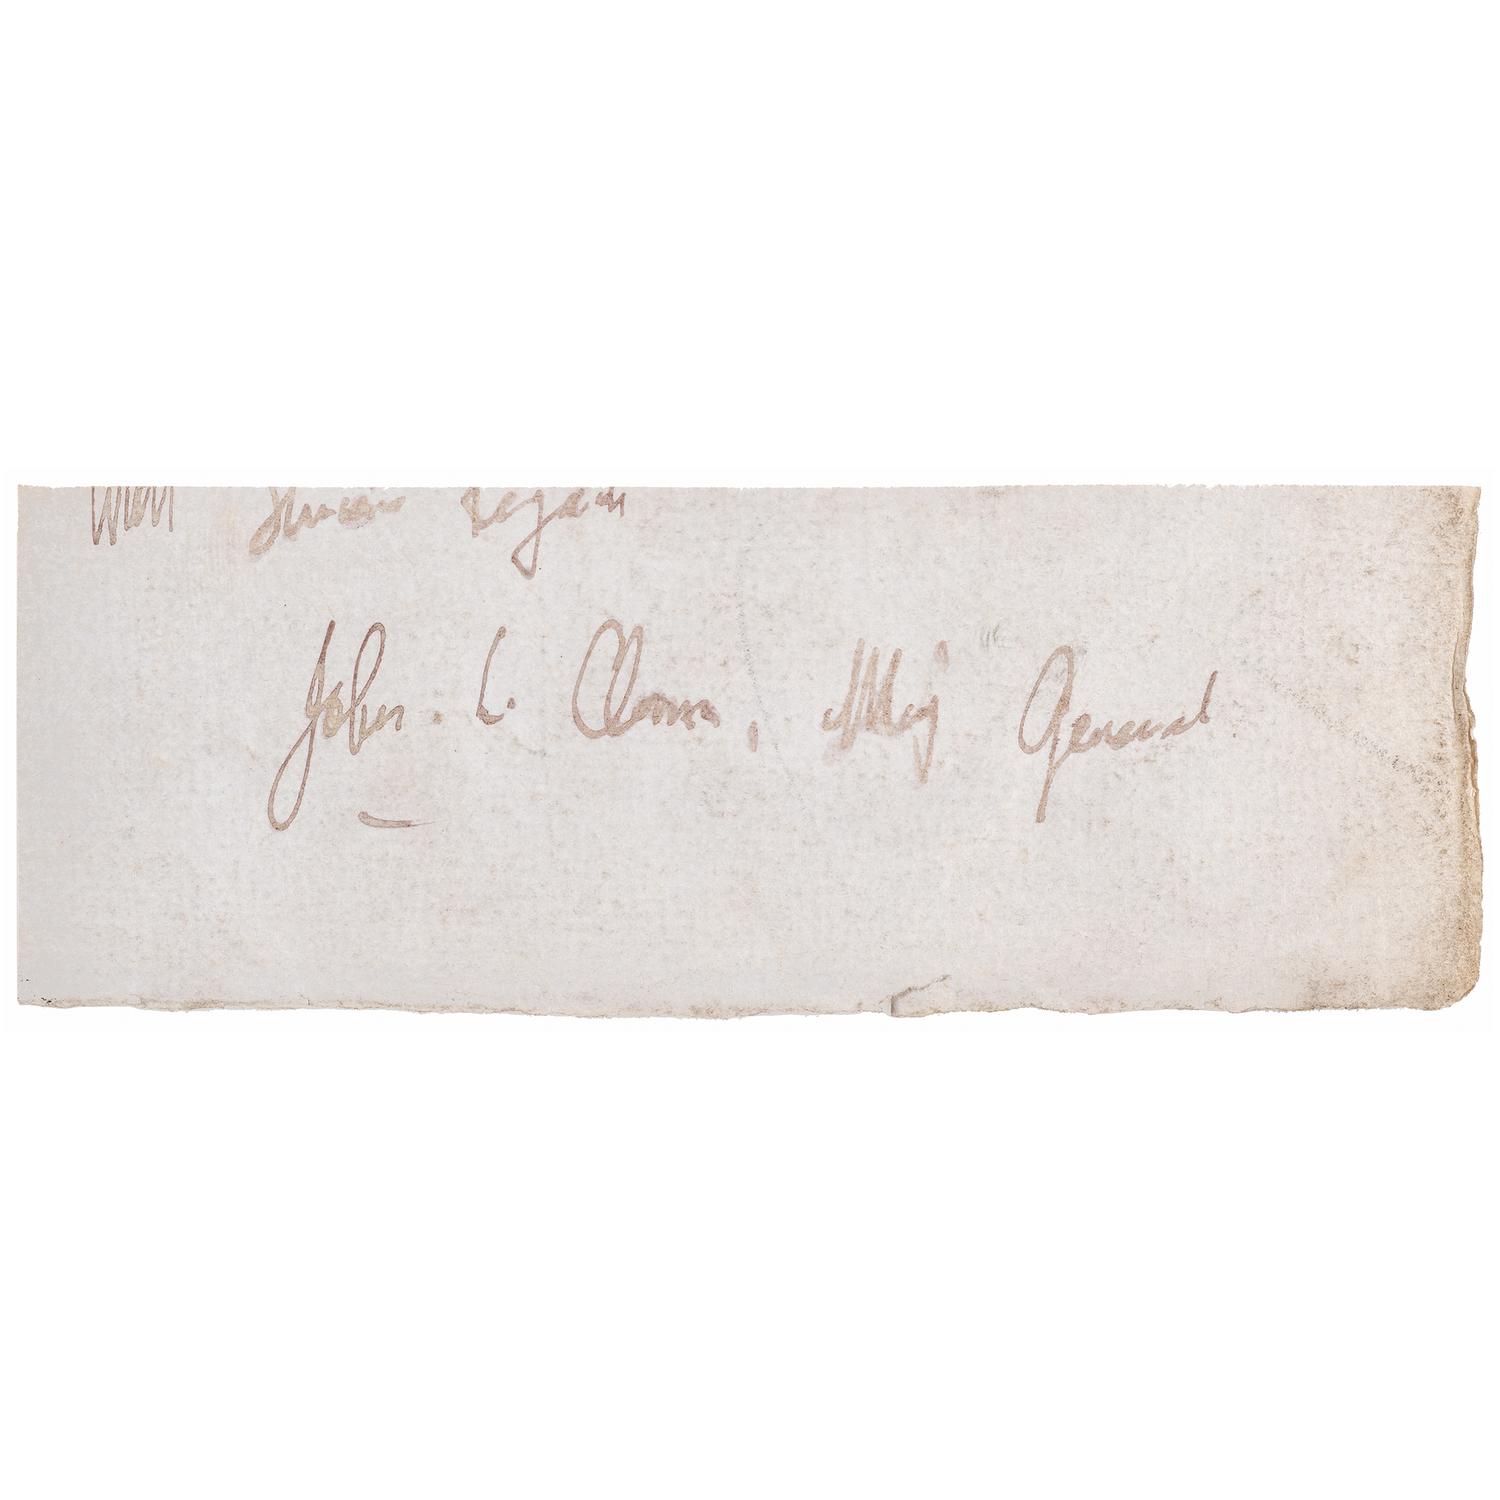 With Sincere regards
John. L. Clem, Maj General